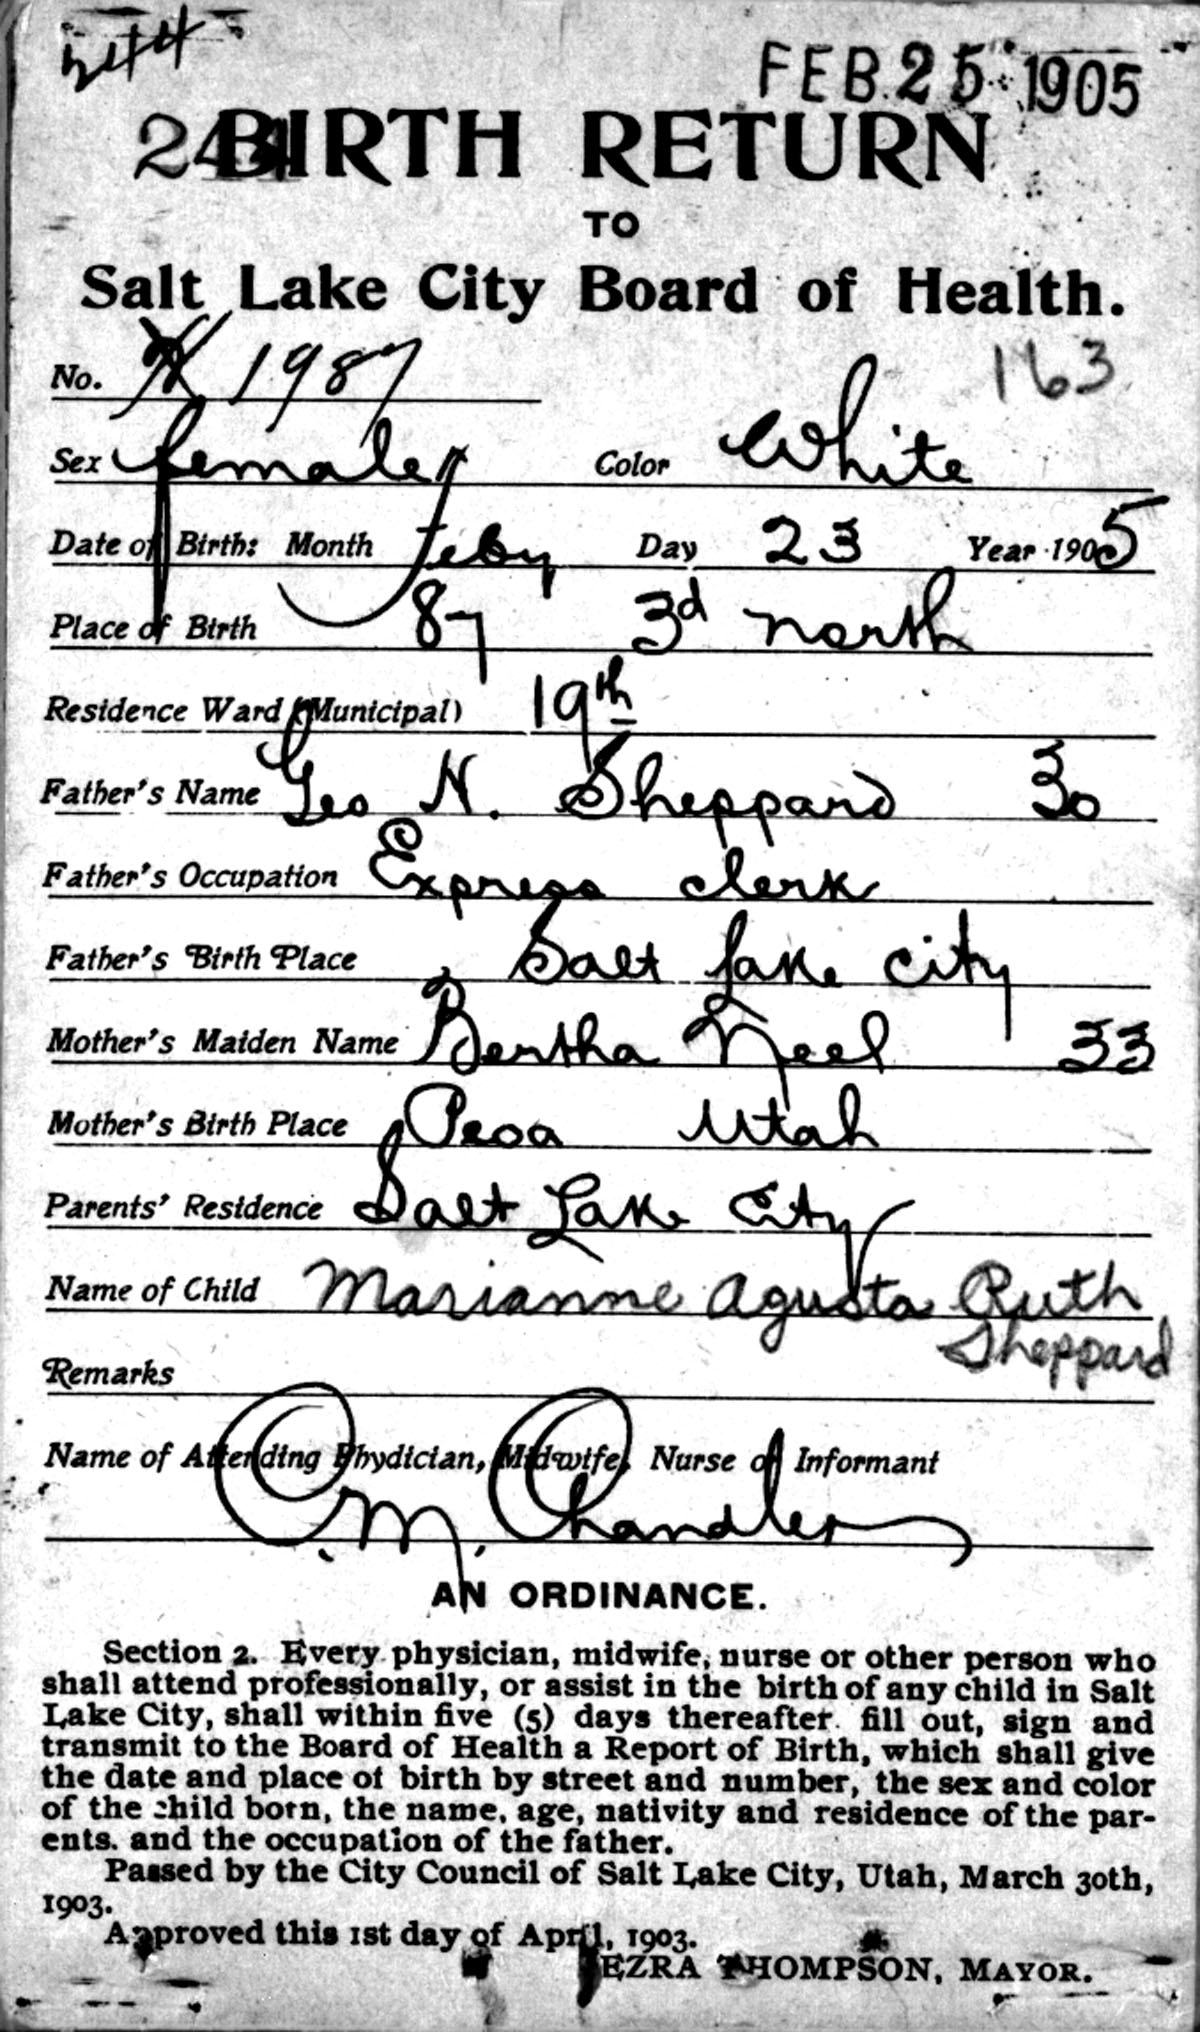 244
FEB. 25 1905
244
BIRTH RETURN
TO
Salt Lake City Board of Health.
No. 1987
163
Sex female Color White
Date of Birth: Month Feby Day 23 Year 1905
Place of Birth 87 3d North
Residence Ward (Municipal) 19th
Father's Name Geo N. Sheppard 30
Father's Occupation Express clerk
Father's Birth Place Salt Lake City
Mother's Maiden Name Bertha Neel 33
Mother's Birth Place Peoa Utah
Parents' Residence Salt Lake City
Name of Child Marianne Agusta Ruth
Sheppard
Remarks
Name of Attending Phydician, Midwife, Nurse of Informant
C. M. Chandler
AN ORDINANCE.
Section 2. Every physician, midwife, nurse or other person who
shall attend professionally, or assist in the birth of any child in Salt
Lake City, shall within five (5) days thereafter fill out, sign and
transmit to the Board of Health a Report of Birth, which shall give
the date and place of birth by street and number, the sex and color
of the child born, the name, age, nativity and residence of the par-
ents. and the occupation of the father.
Passed by the City Council of Salt Lake City, Utah, March 30th,
1903.
Approved this 1st day of April, 1903.
EZRA THOMPSON, MAYOR.